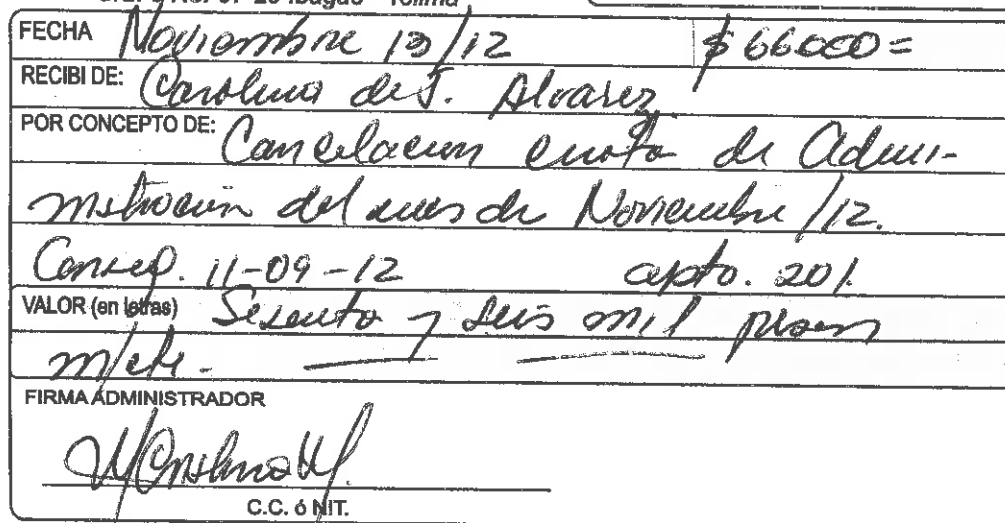 Ibagué - Tolima
FECHA Noviembre 13/12 $66000=
RECIBI DE: Carolina de J. Alvarez
POR CONCEPTO DE: Cancelacion cuota de Admi-
nistracion del mes de Noviembre/12.
Consig. 11-09-12 apto. 201.
VALOR (en letras) Sesenta y seis mil pesos
m/cte.
FIRMA ADMINISTRADOR
C.C. ó NIT.